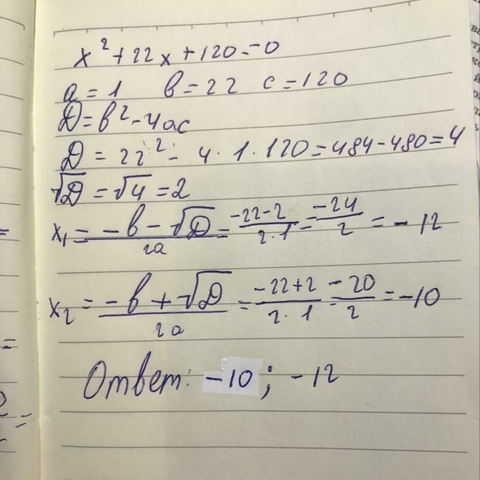 x² + 22x + 120 = 0
a = 1 b = 22 c = 120
D = b² - 4ac
D = 22² - 4 · 1 · 120 = 484 - 480 = 4
√D = √4 = 2
x₁ = (-b - √D)/2a = (-22-2)/(2·1) = -24/2 = -12
x₂ = (-b + √D)/2a = (-22+2)/(2·1) = -20/2 = -10
Ответ: -10; -12